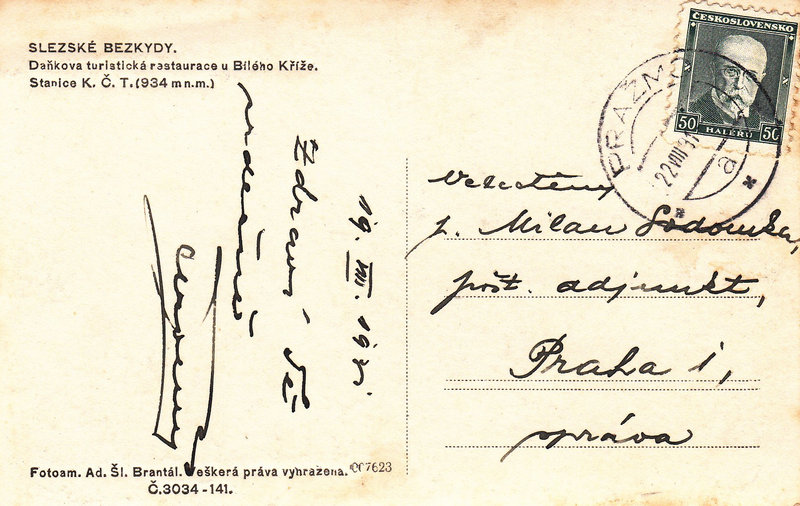 SLEZSKÉ BEZKYDY.
Daňkova turistická restaurace u Bílého Kříže.
Stanice K. Č. T. (934 m n. m.)
19. VIII. 193
Zdraví Tě
srdečně
Fotoam. Ad. Šl. Brantál. Veškerá práva vyhrazena. 7623
Č.3034-141.
ČESKOSLOVENSKO
50 HALÉŘŮ 50
PRAŽMO
22 VIII 3
a
Velectěný
p. Milan Sodomka,
pošt. adjunkt,
Praha 1,
správa